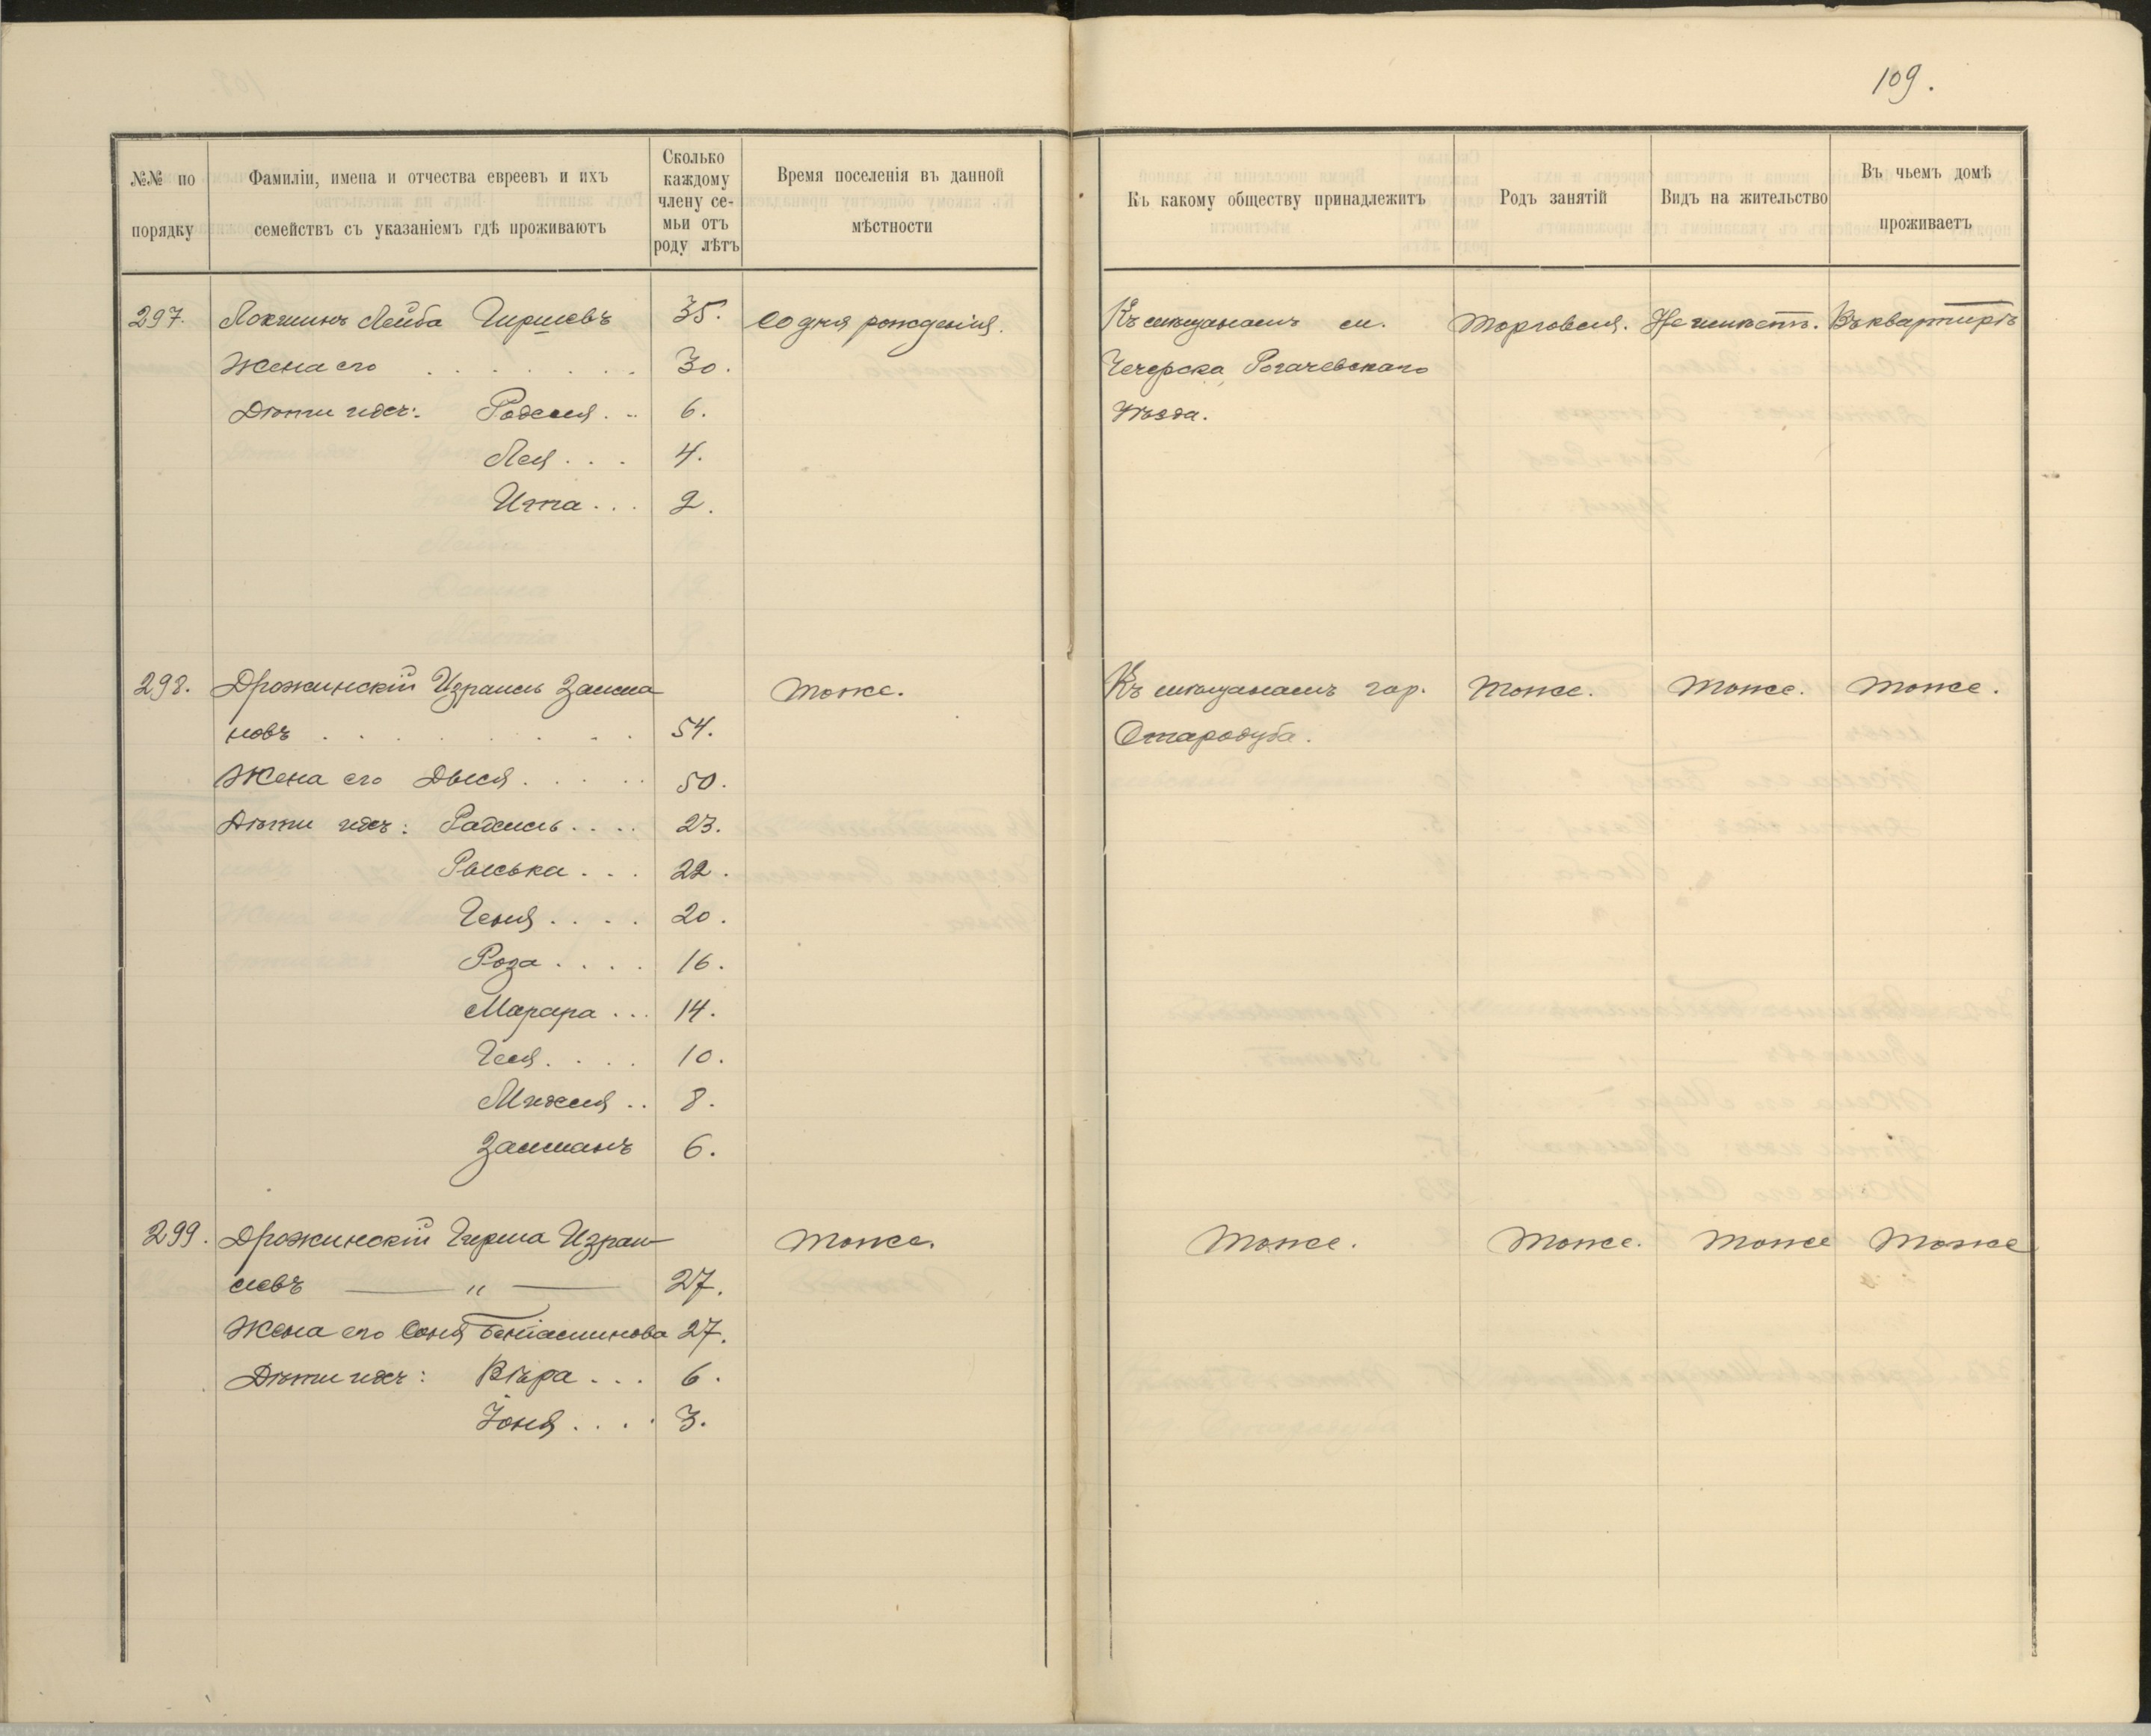 109.
№№ по
порядку
Фамиліи, имена и отчества евреевъ и ихъ
семействъ съ указаніемъ гдѣ проживаютъ
Сколько
каждому
члену се-
мьи отъ
роду лѣтъ
Время поселенія въ данной
мѣстности
Къ какому обществу принадлежитъ
Родъ занятій
Видъ на жительство
Въ чьемъ домѣ
проживаетъ
297. Локшинъ Лейба Гиршевъ 35. Со дня рожденія. Къ мѣщанамъ м. Торговля. Не имѣетъ. Въ квартирѣ
Жена его . . . . . . 30. Чечерска Рогачевскаго
Дѣти ихъ: Родля . . 6. Уѣзда.
Лея . . . 4.
Ита . . . 2.
298. Дрожинскій Израиль Залма- Тоже. Къ мѣщанамъ гор. Тоже. Тоже. Тоже.
новъ . . . . . . . 54. Стародуба.
Жена его Дыся . . . . 50.
Дѣти ихъ: Рахиль . . . . 23.
Рыська . . . 22.
Геня . . . . 20.
Роза . . . . 16.
Марара . . . 14.
Геля . . . . 10.
Михля . . 8.
Залманъ 6.
299. Дрожинскій Гирша Израи- Тоже. Тоже. Тоже. Тоже Тоже
левъ — „ — 27.
Жена его Соня Беніаминова 27.
Дѣти ихъ: Вѣра . . . 6.
Іоня . . . . 3.